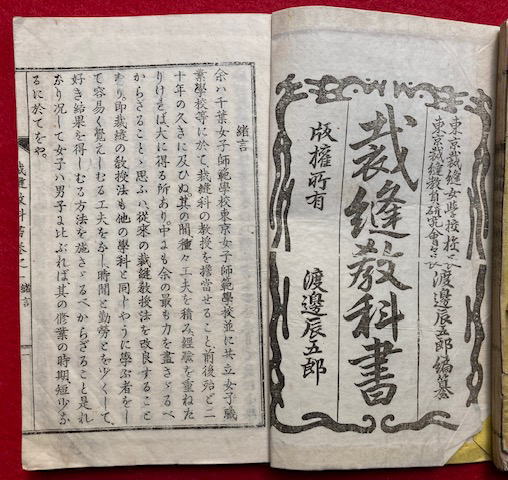 東京裁縫女學校校
東京裁縫教育研究會會
渡邊辰五郎編纂
裁縫教科書
版權所有
渡邊辰五郎
緒言
余ハ千葉女子師範學校東京女子師範學校並に共立女子職
業學校等に於て裁縫科の教授を擔當せること前後殆ど二
十年の久きに及ひぬ其の間種々工夫を積み經驗を重ねた
りければ大に得る所あり中にも余の最も力を盡さゞるべ
からざることゝ思ふハ從來の裁縫教授法を改良すること
なり即裁縫の教授法も他の學科と同しやうに學ぶ者をし
て容易く覺えしむる工夫をなし時間と勤勞とを少くして
好き結果を得しむる方法を施さゞるべからざること是れ
なり况して女子ハ男子に比ぶれば其の修業の時期短少な
るに於てをや。
裁縫教科書卷之一 緒言